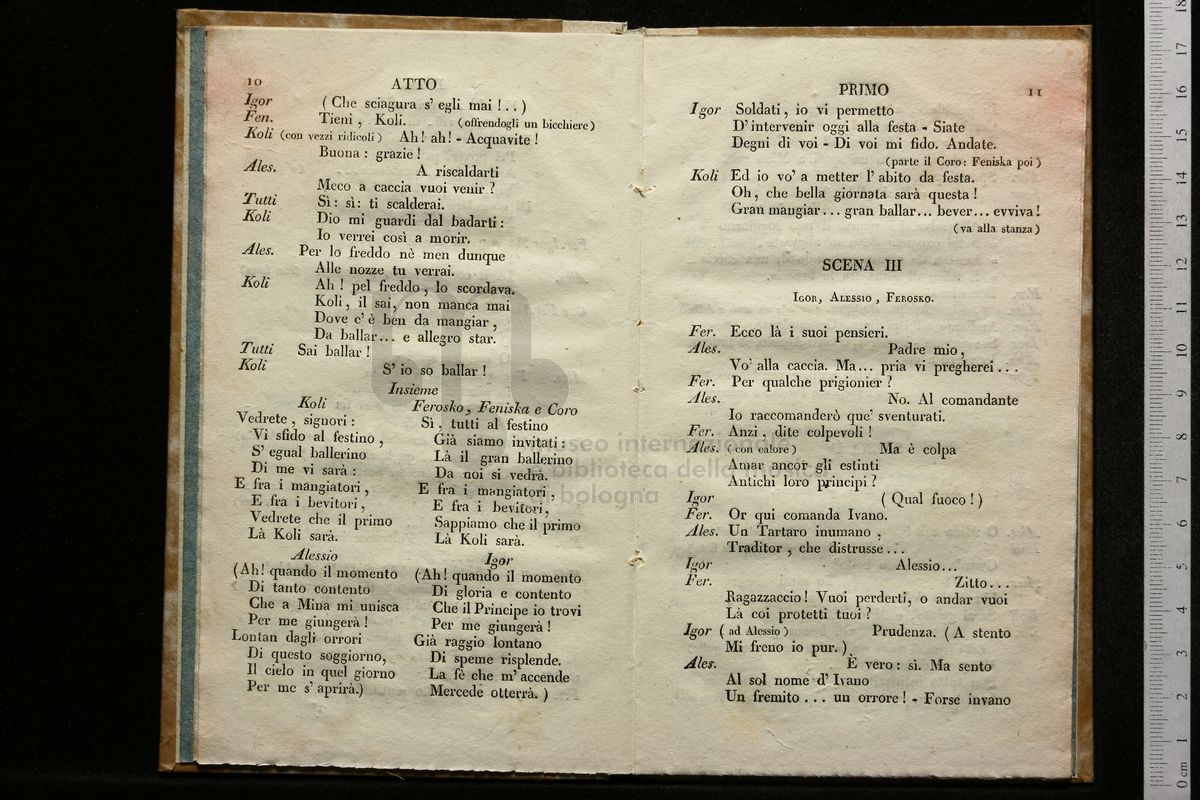 10
ATTO
Igor (Che sciagura s' egli mai !..)
Fen. Tieni, Koli. (offrendogli un bicchiere)
Koli (con vezzi ridicoli) Ah! ah! - Acquavite !
Buona : grazie !
Ales. A riscaldarti
Meco a caccia vuoi venir ?
Tutti Sì: sì: ti scalderai.
Koli Dio mi guardi dal badarti :
Io verrei così a morir.
Ales. Per lo freddo nè men dunque
Alle nozze tu verrai.
Koli Ah ! pel freddo, lo scordava.
Koli, il sai, non manca mai
Dove c' è ben da mangiar,
Da ballar... e allegro star.
Tutti Sai ballar !
Koli S' io so ballar !
Insieme
Koli
Vedrete, signori :
Vi sfido al festino,
S' egual ballerino
Di me vi sarà :
E fra i mangiatori,
E fra i bevitori,
Vedrete che il primo
Là Koli sarà.
Ferosko, Feniska e Coro
Sì, tutti al festino
Già siamo invitati :
Là il gran ballerino
Da noi si vedrà.
E fra i mangiatori,
E fra i bevitori,
Sappiamo che il primo
Là Koli sarà.
Alessio
(Ah! quando il momento
Di tanto contento
Che a Mina mi unisca
Per me giungerà !
Lontan dagli orrori
Di questo soggiorno,
Il cielo in quel giorno
Per me s' aprirà.)
Igor
(Ah! quando il momento
Di gloria e contento
Che il Principe io trovi
Per me giungerà !
Già raggio lontano
Di speme risplende.
La fè che m' accende
Mercede otterrà. )
PRIMO
11
Igor Soldati, io vi permetto
D' intervenir oggi alla festa - Siate
Degni di voi - Di voi mi fido. Andate.
(parte il Coro: Feniska poi)
Koli Ed io vo' a metter l' abito da festa.
Oh, che bella giornata sarà questa !
Gran mangiar... gran ballar... bever... evviva !
(va alla stanza)
SCENA III
IGOR, ALESSIO, FEROSKO.
Fer. Ecco là i suoi pensieri.
Ales. Padre mio,
Vo' alla caccia. Ma... pria vi pregherei...
Fer. Per qualche prigionier ?
Ales. No. Al comandante
Io raccomanderò que' sventurati.
Fer. Anzi, dite colpevoli !
Ales. (con calore) Ma è colpa
Amar ancor gli estinti
Antichi loro principi ?
Igor (Qual fuoco !)
Fer. Or qui comanda Ivano.
Ales. Un Tartaro inumano,
Traditor, che distrusse...
Igor Alessio...
Fer. Zitto...
Ragazzaccio! Vuoi perderti, o andar vuoi
Là coi protetti tuoi ?
Igor ( ad Alessio ) Prudenza. ( A stento
Mi freno io pur. )
Ales. È vero : sì. Ma sento
Al sol nome d' Ivano
Un fremito ... un orrore ! - Forse invano
museo internazionale
e biblioteca della musica
di bologna
0 cm 1 2 3 4 5 6 7 8 9 10 11 12 13 14 15 16 17 18